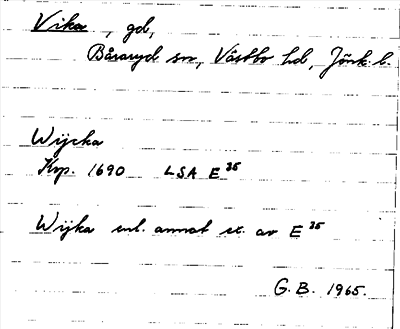 Vika, gd,
Båraryd sn, Västbo hd, Jönk. l.
Wijcka
Krp. 1690 LSA E 35
Wijka enl. annat ex. av E 35
G. B. 1965.